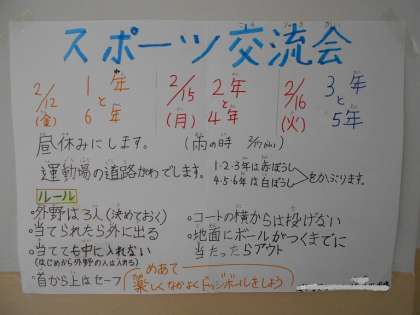 スポーツ交流会
2/12(金) 1年と6年
2/15(月) 2年と4年
2/16(火) 3年と5年
昼休みにします。(雨の時 2/17(水))
運動場の道路がわでします。
1・2・3年は赤ぼうし
4・5・6年は白ぼうし
をかぶります。
ルール
・外野は3人(決めておく)
・当てられたら外に出る
・当てても中に入れない
(はじめから外野の人は入れる)
・首から上はセーフ
・コートの横からは投げない
・地面にボールがつくまでに
当たったらアウト
めあて
楽しくなかよくドッジボールをしよう